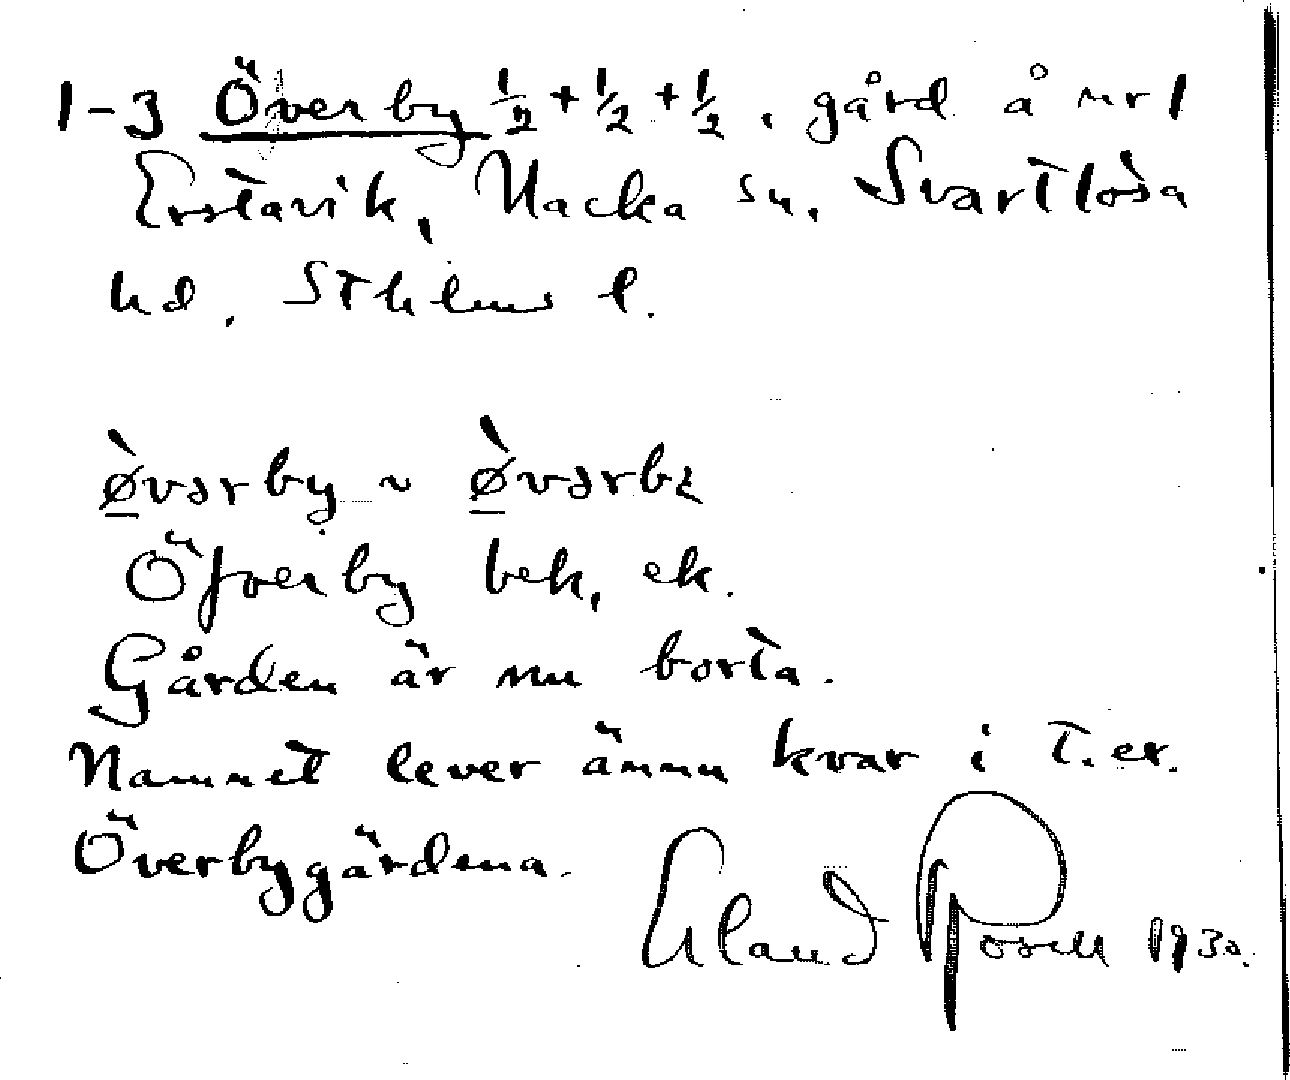 1-3 Överby ½ + ½ + ½, gård å nr 1
Erstavik, Nacka sn, Svartlösa
hd, Sthlms l.
ø̀vərby ~ ø̀vərbɪ
Öfverby bek, ek.
Gården är nu borta.
Namnet lever ännu kvar i T.ex.
Överbygärdena.
Erland Rosell 1930.